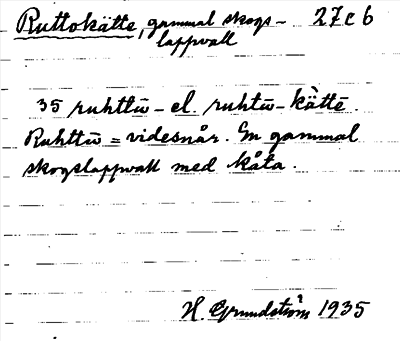 Ruttokätte, gammal skogs- 27 c 6
lappvall
35 ruhttū- el. ruhtū-kättē.
Ruhttū = videsnår. En gammal
skogslappvall med kåta.
H. Grundström 1935